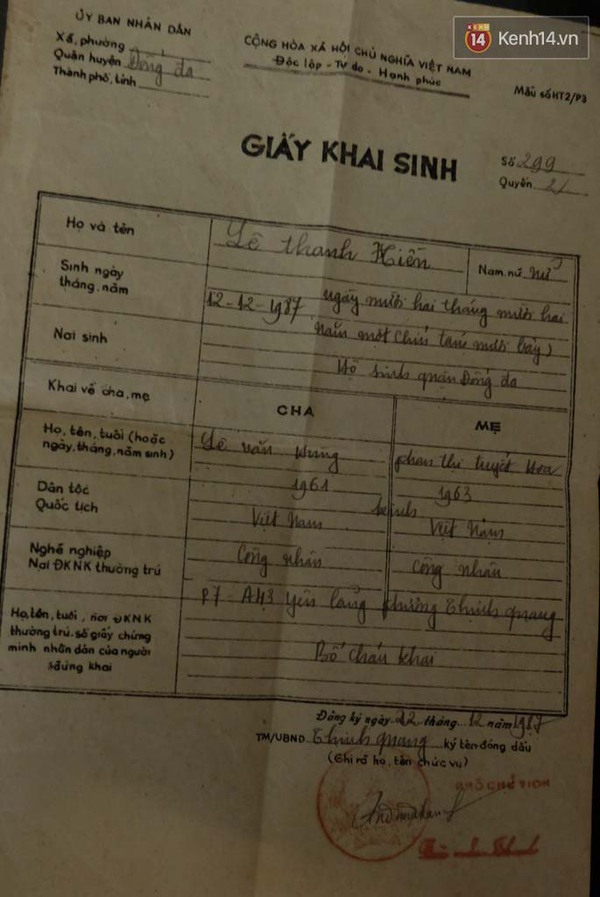 ỦY BAN NHÂN DÂN
Xã, phường
Quận huyện Đống đa
Thành phố, tỉnh
CỘNG HÒA XÃ HỘI CHỦ NGHĨA VIỆT NAM
Độc lập - Tự do - Hạnh phúc
14 Kenh14.vn
Mẫu số HT2/P3
GIẤY KHAI SINH
Số 299
Quyển 21
Họ và tên Lê thanh Hiền Nam, nữ nữ
Sinh ngày tháng, năm 12-12-1987 ngày mười hai tháng mười hai
năm một chín tám mười bảy)
Nơi sinh Hộ sinh quận Đống đa
Khai về cha, mẹ CHA MẸ
Họ, tên, tuổi (hoặc ngày, tháng, năm sinh) Lê văn Hưng phan thị tuyết Hoa
1961 1963
Dân tộc kinh
Quốc tịch Việt Nam Việt Nam
Nghề nghiệp Công nhân công nhân
Nơi ĐKNK thường trú P7 - A43 yên lãng phường thịnh quang
Họ, tên, tuổi, nơi ĐKNK
thường trú, số giấy chứng
minh nhân dân của người
đứng khai Bố cháu khai
Đăng ký ngày 22 tháng 12 năm 1987
TM/UBND thịnh quang ký tên đóng dấu
(Ghi rõ họ, tên chức vụ)
PHÓ CHỦ TỊCH